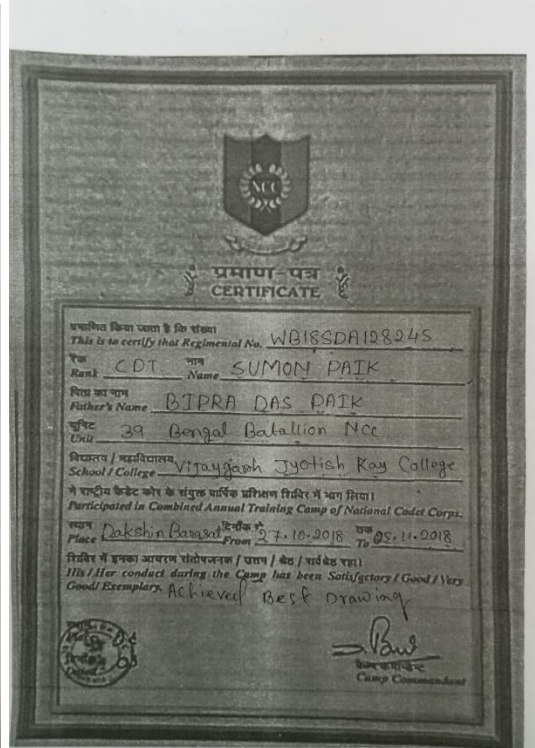 NCC
प्रमाण-पत्र
CERTIFICATE
प्रमाणित किया जाता है कि संख्या
This is to certify that Regimental No. WB18SDA128245
रैंक CDT नाम SUMON PAIK
Rank Name
पिता का नाम
Father's Name BIPRA DAS PAIK
यूनिट
Unit 39 Bengal Batallion NCC
विद्यालय / महाविद्यालय
School / College Vijaygarh Jyotish Ray College
ने राष्ट्रीय कैडेट कोर के संयुक्त वार्षिक प्रशिक्षण शिविर में भाग लिया।
Participated in Combined Annual Training Camp of National Cadet Corps.
स्थान दिनाँक से तक
Place Dakshin Barasat From 27.10.2018 To 05.11.2018
शिविर में इनका आचरण संतोषजनक / उत्तम / श्रेष्ठ / सर्वश्रेष्ठ रहा।
His / Her conduct during the Camp has been Satisfactory / Good / Very
Good / Exemplary. Achieved Best Drawing
Dated
कैम्प कमान्डेन्ट
Camp Commandant